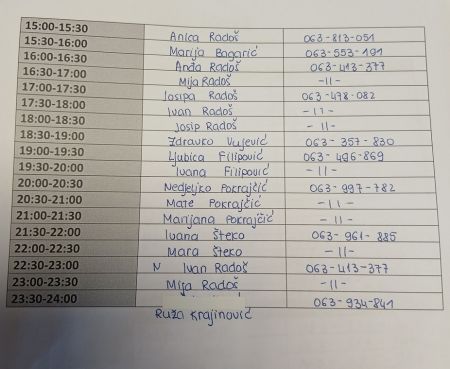 15:00-15:30 Anica Radoš 063-813-051
15:30-16:00 Marija Bagarić 063-553-191
16:00-16:30 Anđa Radoš 063-413-377
16:30-17:00 Mija Radoš -II-
17:00-17:30 Josipa Radoš 063-478-082
17:30-18:00 Ivan Radoš -II-
18:00-18:30 Josip Radoš -II-
18:30-19:00 Zdravko Vujević 063-357-830
19:00-19:30 Ljubica Filipović 063-496-869
19:30-20:00 Ivana Filipović -II-
20:00-20:30 Nedjeljko Pokrajčić 063-997-782
20:30-21:00 Mate Pokrajčić -II-
21:00-21:30 Marijana Pokrajčić -II-
21:30-22:00 Ivana Šteko 063-961-885
22:00-22:30 Mara Šteko -II-
22:30-23:00 N Ivan Radoš 063-413-377
23:00-23:30 Mija Radoš -II-
23:30-24:00 063-934-841
Ruža Krajinović